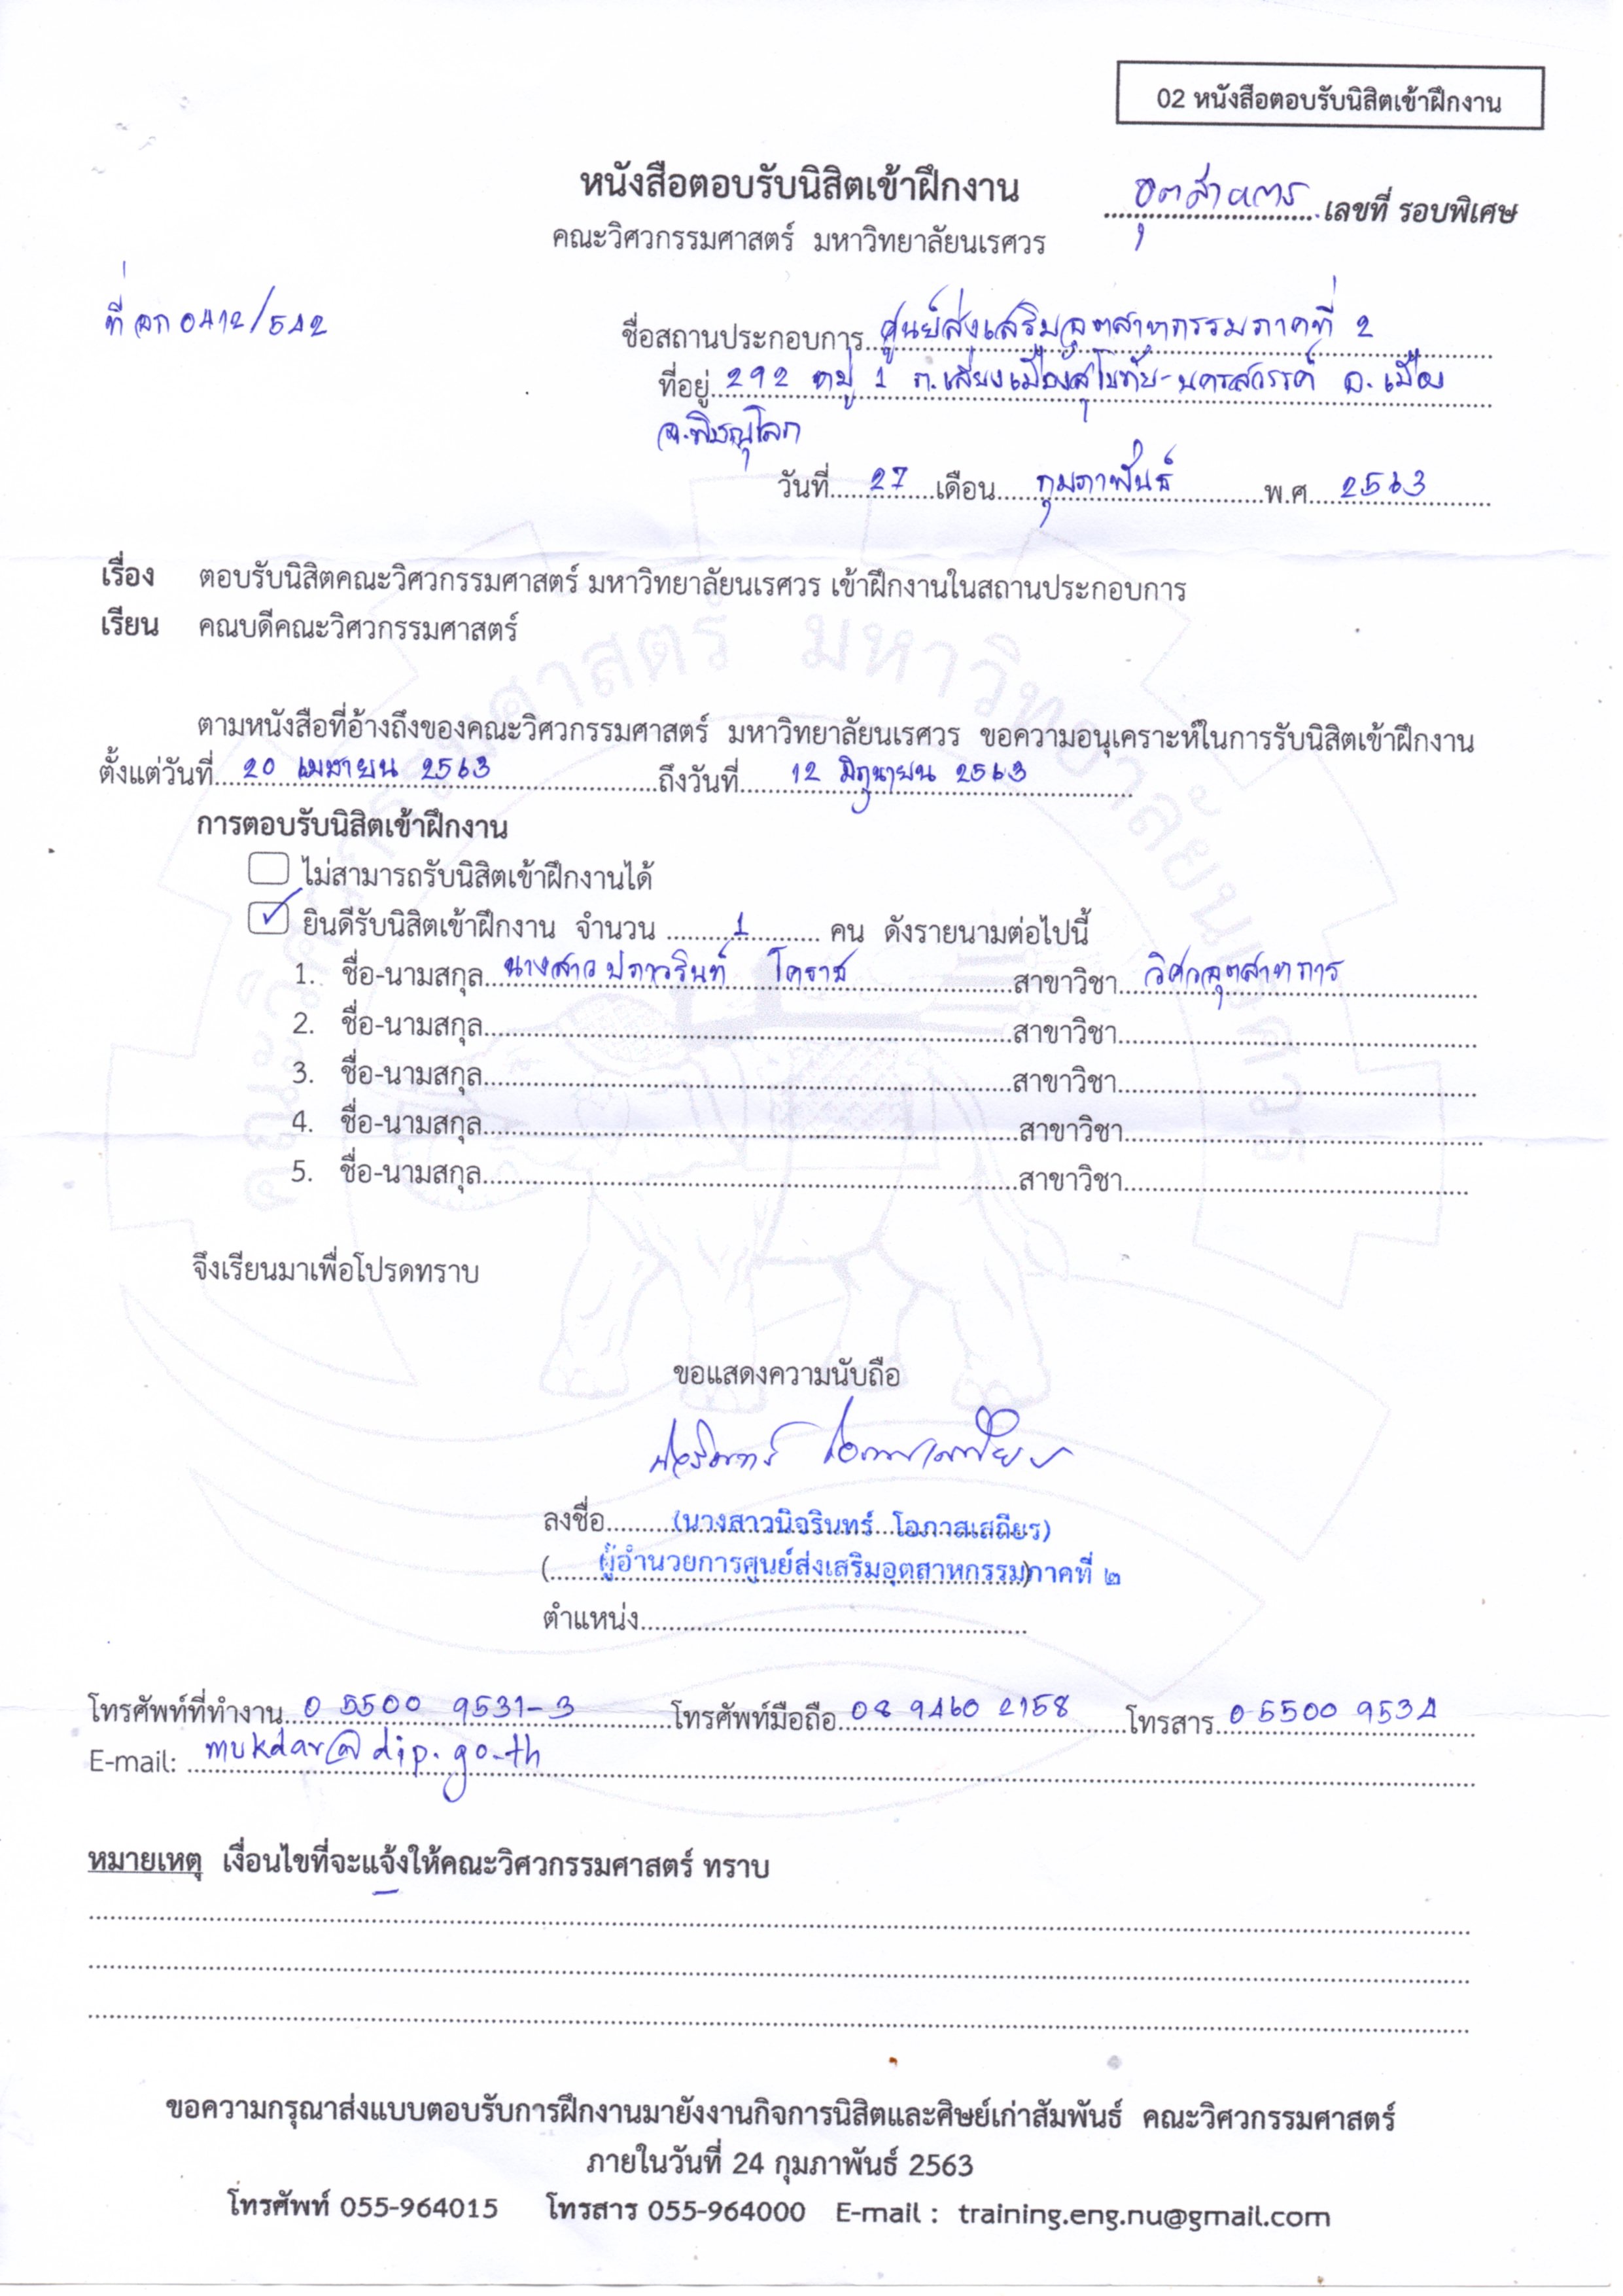 02 หนังสือตอบรับนิสิตเข้าฝึกงาน
หนังสือตอบรับนิสิตเข้าฝึกงาน
อุตสาหการ เลขที่ รอบพิเศษ
คณะวิศวกรรมศาสตร์ มหาวิทยาลัยนเรศวร
ที่ อก 0412/542
ชื่อสถานประกอบการ ศูนย์ส่งเสริมอุตสาหกรรมภาคที่ 2
ที่อยู่ 292 หมู่ 1 ถ.เลี่ยงเมืองสุโขทัย-นครสวรรค์ อ.เมือง
จ.พิษณุโลก
วันที่ 27 เดือน กุมภาพันธ์ พ.ศ. 2563
เรื่อง ตอบรับนิสิตคณะวิศวกรรมศาสตร์ มหาวิทยาลัยนเรศวร เข้าฝึกงานในสถานประกอบการ
เรียน คณบดีคณะวิศวกรรมศาสตร์
ตามหนังสือที่อ้างถึงของคณะวิศวกรรมศาสตร์ มหาวิทยาลัยนเรศวร ขอความอนุเคราะห์ในการรับนิสิตเข้าฝึกงาน
ตั้งแต่วันที่ 20 เมษายน 2563 ถึงวันที่ 12 มิถุนายน 2563
การตอบรับนิสิตเข้าฝึกงาน
ไม่สามารถรับนิสิตเข้าฝึกงานได้
✓ ยินดีรับนิสิตเข้าฝึกงาน จำนวน 1 คน ดังรายนามต่อไปนี้
1. ชื่อ-นามสกุล นางสาวปภาวรินท์ โคราช สาขาวิชา วิศวอุตสาหการ
2. ชื่อ-นามสกุล สาขาวิชา
3. ชื่อ-นามสกุล สาขาวิชา
4. ชื่อ-นามสกุล สาขาวิชา
5. ชื่อ-นามสกุล สาขาวิชา
จึงเรียนมาเพื่อโปรดทราบ
ขอแสดงความนับถือ
ลงชื่อ (นางสาวนิจรินทร์ โอภาสเสถียร)
( ผู้อำนวยการศูนย์ส่งเสริมอุตสาหกรรมภาคที่ ๒ )
ตำแหน่ง
โทรศัพท์ที่ทำงาน 0 5500 9531-3 โทรศัพท์มือถือ 08 9460 2158 โทรสาร 0 5500 9534
E-mail: mukdar@dip.go.th
หมายเหตุ เงื่อนไขที่จะแจ้งให้คณะวิศวกรรมศาสตร์ ทราบ
ขอความกรุณาส่งแบบตอบรับการฝึกงานมายังงานกิจการนิสิตและศิษย์เก่าสัมพันธ์ คณะวิศวกรรมศาสตร์
ภายในวันที่ 24 กุมภาพันธ์ 2563
โทรศัพท์ 055-964015 โทรสาร 055-964000 E-mail : training.eng.nu@gmail.com
คณะวิศวกรรมศาสตร์ มหาวิทยาลัยนเรศวร